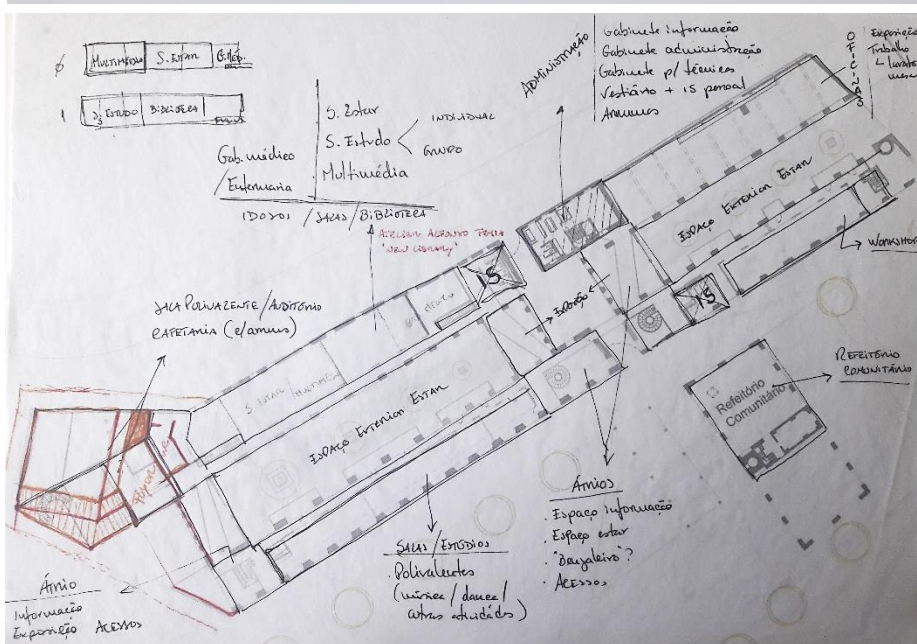 Ø MULTIMÉDIA S. ESTAR G. MÉD.
1 S. ESTUDO BIBLIOTECA
Gab. médico
/ Enfermaria
S. Estar
S. Estudo < INDIVIDUAL
GRUPO
Multimédia
IDOSOS / SALAS / BIBLIOTECA
"NEW LIBRARY"
ADMINISTRAÇÃO
Gabinete informação
Gabinete administração
Gabinete p/ técnicos
Vestiário + IS pessoal
Arrumos
OFICINAS
Exposição
Trabalho
ESPAÇO EXTERIOR ESTAR
WORKSHOP
IS
IS
EXPOSIÇÃO
SALA POLIVALENTE / AUDITÓRIO
CAFETARIA (c/ arrumos)
S. ESTAR / MULTIMÉDIA
ESPAÇO EXTERIOR ESTAR
REFEITÓRIO
COMUNITÁRIO
Refeitório
Comunitário
Átrios
. Espaço informação
. Espaço estar
. "Bengaleiro"?
. Acessos
SALAS / ESTÚDIOS
. Polivalentes
(música / dança /
outras atividades)
Átrio
Informação
Exposição ACESSOS